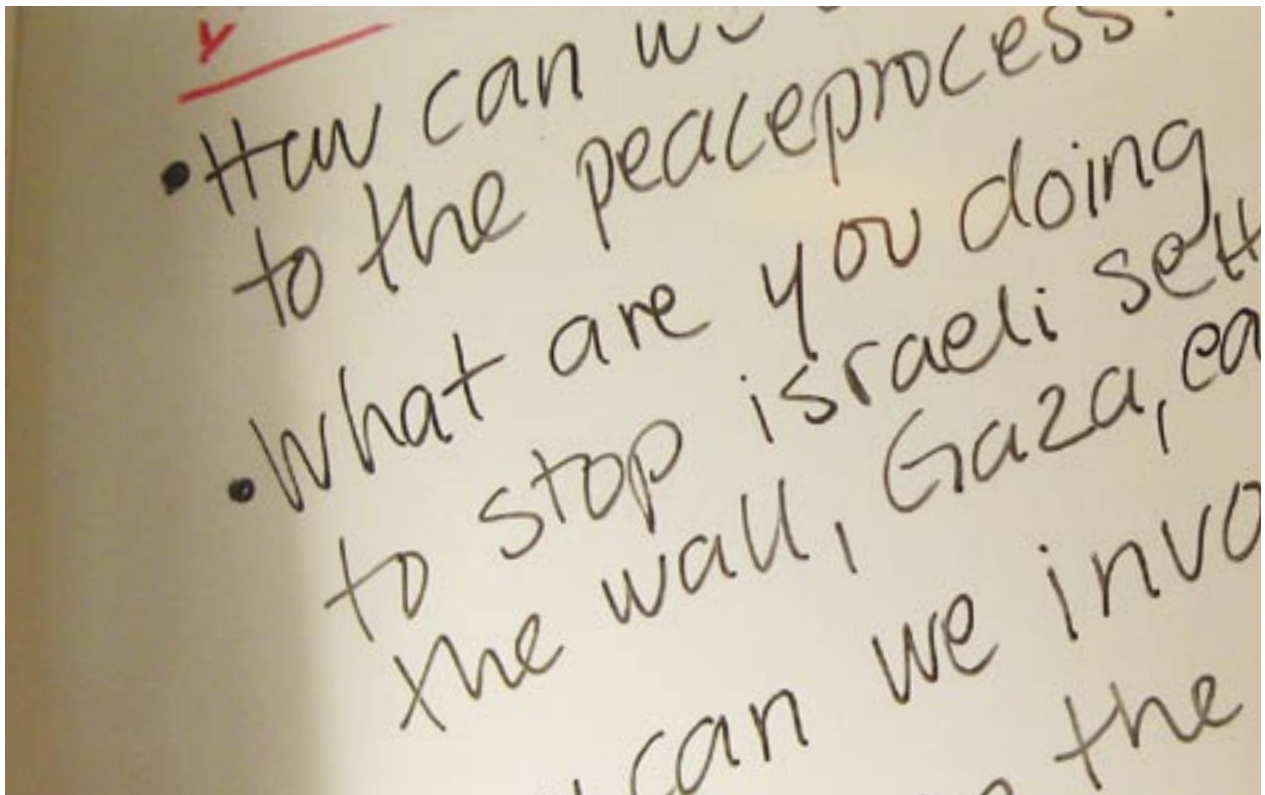 y
• How can we
to the peaceprocess.
• What are you doing
to stop israeli sett
the wall, Gaza, ea
can we invo
the